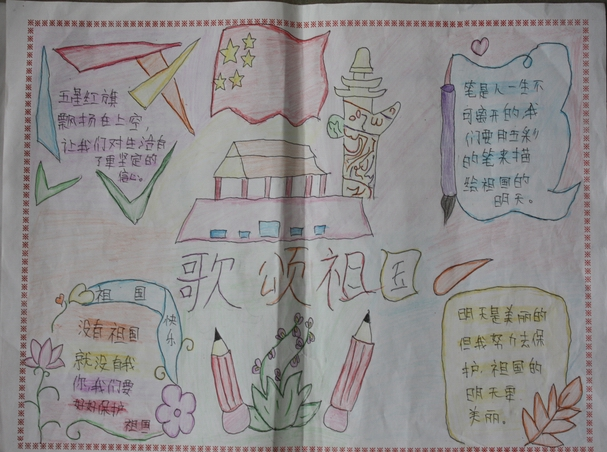 五星红旗
飘扬在上空,
让我们对生活有
了更坚定的
信心。
笔是人一生不
可离开的,我
们要用五彩
的笔来描
绘祖国的
明天。
歌颂祖国
祖国
快乐
没有祖国
就没有我
你,我们要
好好保护
祖国
明天是美丽的
但我努力去保
护,祖国的
明天更
美丽。